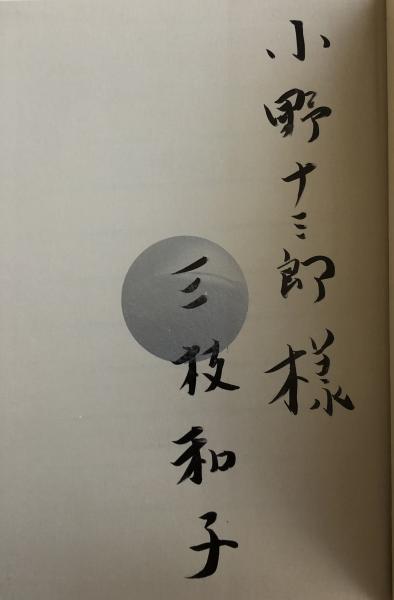 小野十三郎様
三枝和子